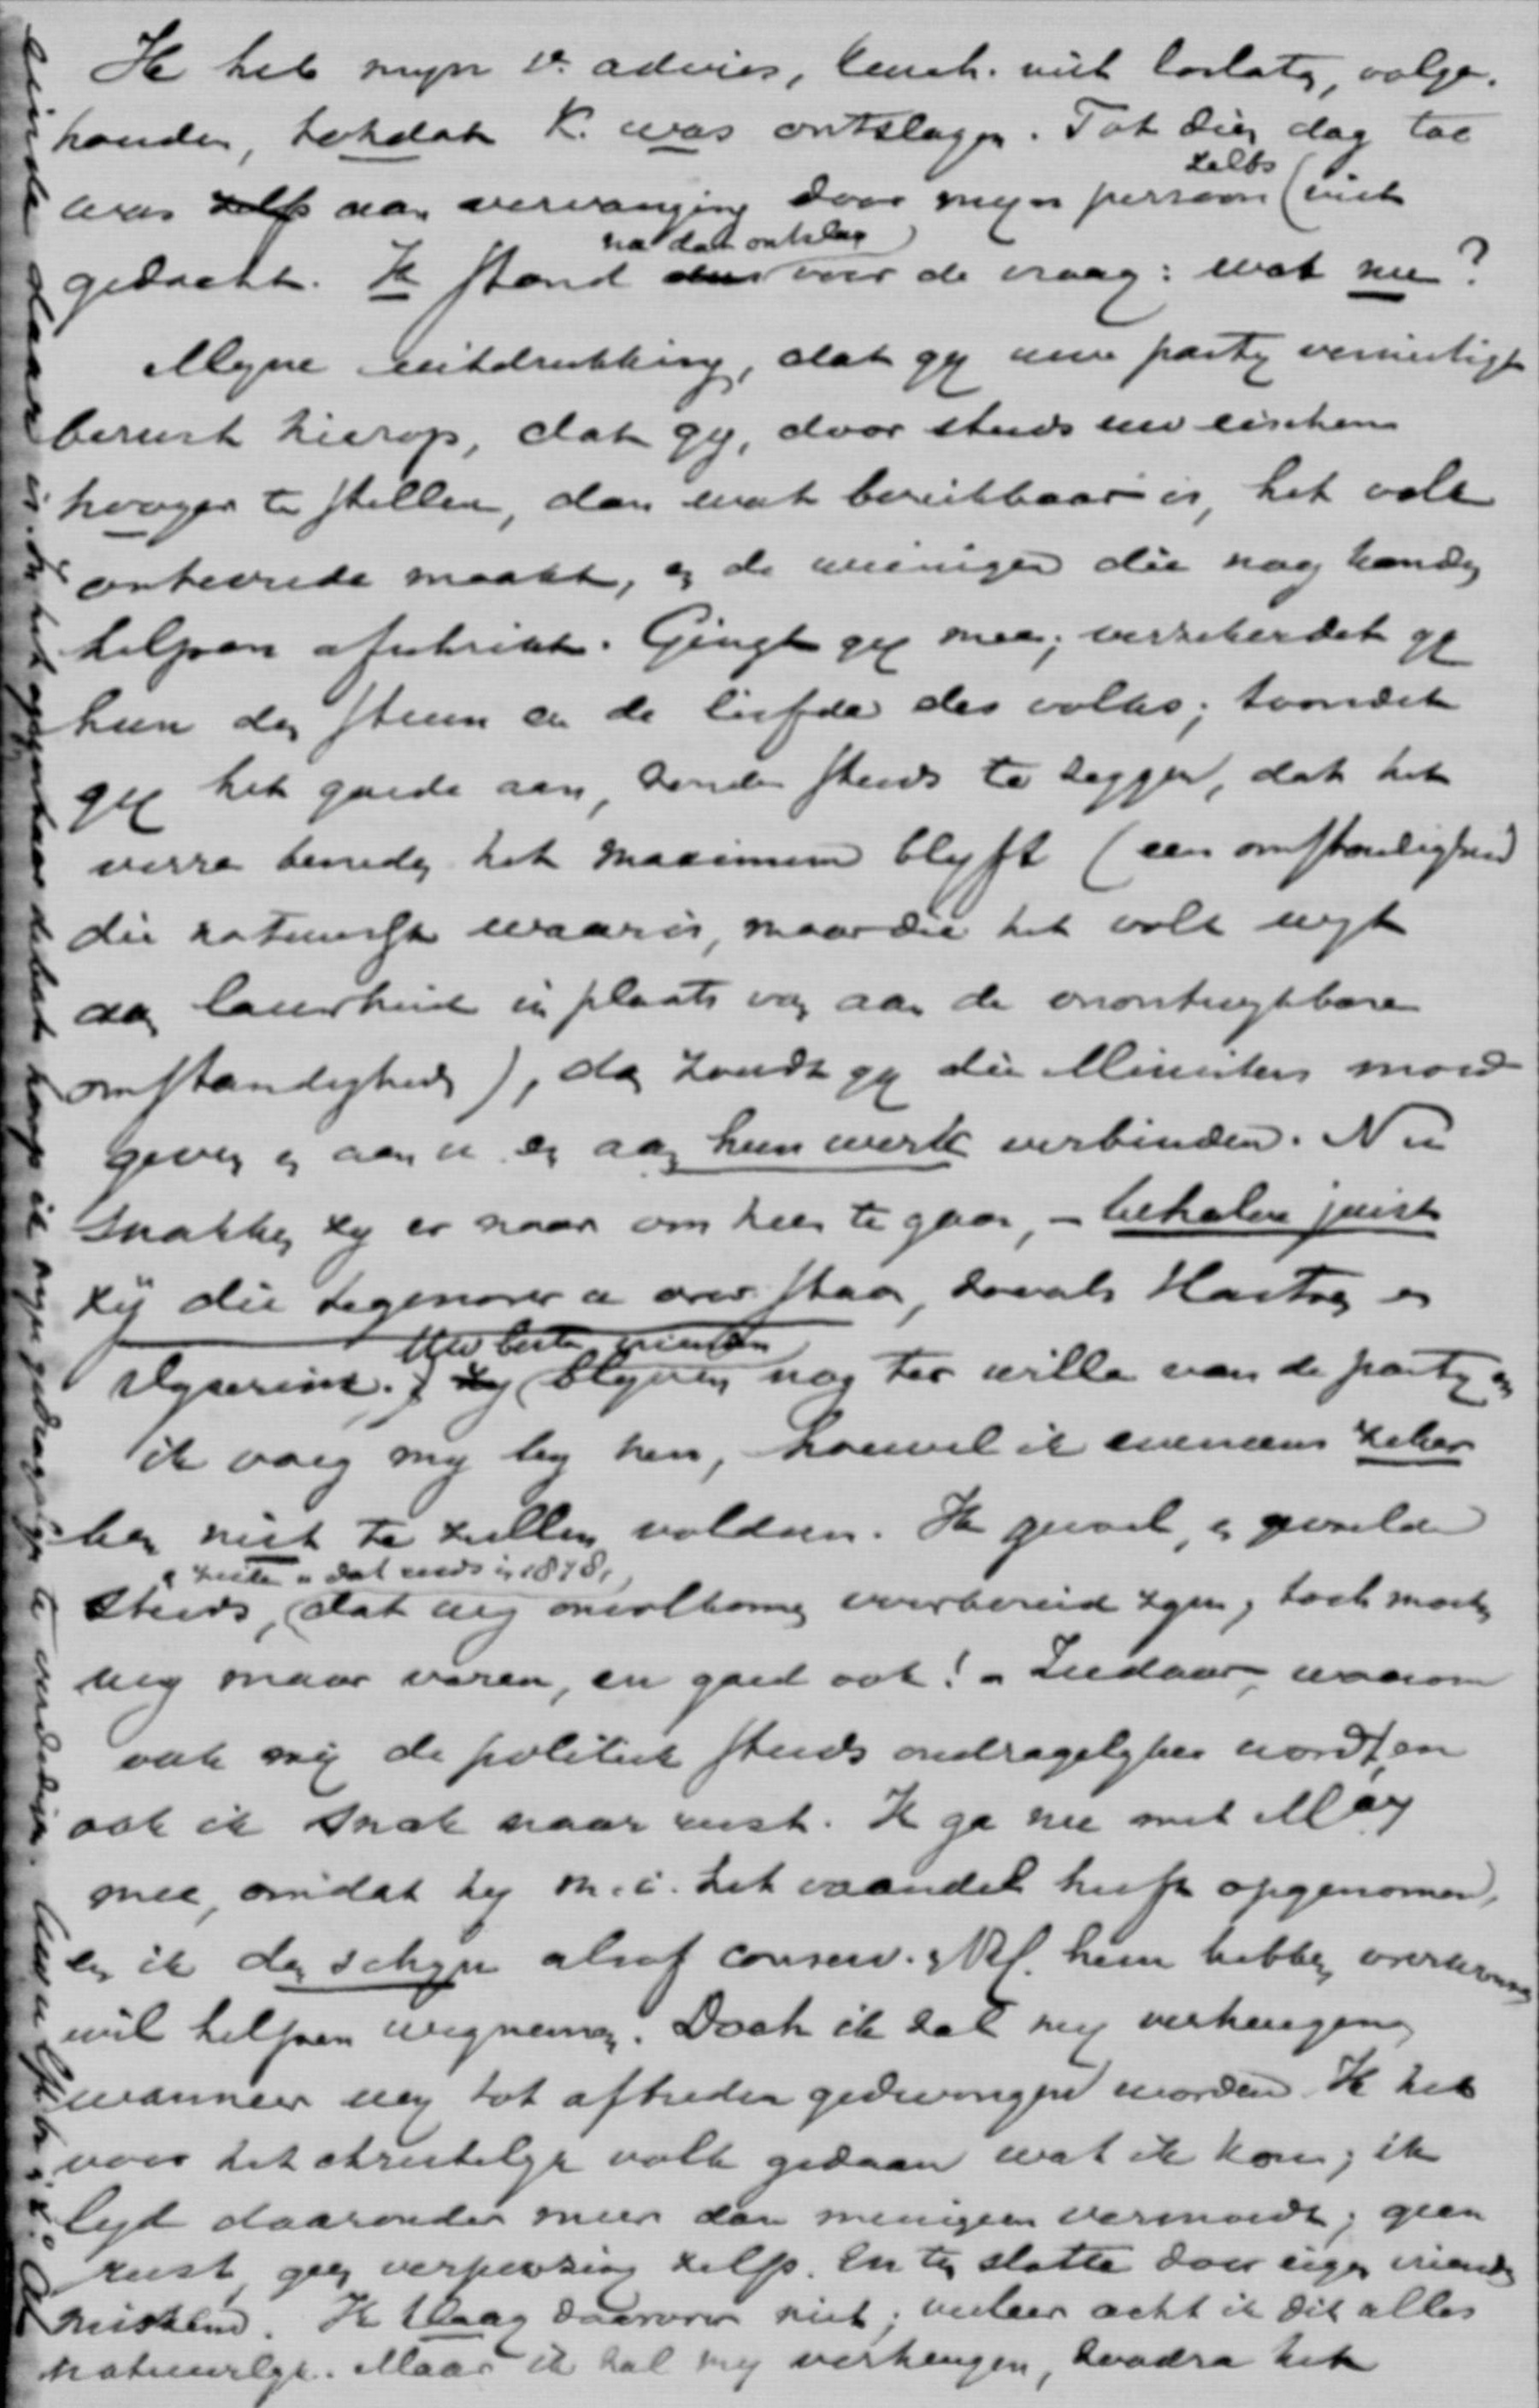 Ik heb myn 1e advies, Keuch. niet loslaten, volge-
houden, totdat K. was ontslagen. Tot dien dag toe
was zelfs aan vervanging door myn persoon zelfs (niet
gedacht. Ik stond na dat ontslag voor de vraag: wat nu?
Myne uitdrukking, dat gy uwe party vernietigt
berust hierop, dat gy, door steeds uw eischen
hooger te stellen, dan wat bereikbaar is, het volk
ontevreden maakt, en de weinigen die nog konden
helpen afschrikt. Gingt gy mee; verzekerdet gy
hun den steun en de liefde des volks; toondet
gy het goede aan, zonder steeds te zeggen, dat het
verre beneden het maximum blyft (een omstandigheid
die natuurlyk waar is, maar die het volk wyt
aan lauwheid in plaats van aan de onontwykbare
omstandigheden), dan zoudt gy die Ministers moed
geven en aan u en aan hun werk verbinden. Nu
snakken zy er naar om heen te gaan, – behalve juist
zij die tegenover u over staan, zooals Hartog en
Uw beste vrienden
blyven nog ter wille van de party en
ik voeg my by hen, hoewel ik eveneens zeker
ben niet te zullen voldoen. Ik gevoel, en gevoelde
en zeide u dat reeds in 1878,
steeds, dat wy onvolkomen voorbereid zyn; toch moeten
wy maar varen, en goed ook! – Ziedaar, waarom
ook mij de politiek steeds ondragelyker wordt, en
ook ik snak naar rust. Ik ga nu met Máy
mee, omdat hy m.i. het vaandel heeft opgenomen,
en ik den schyn alsof conserv. & Rl. hem hebben overwonnen
wil helpen wegnemen. Doch ik zal my verheugen,
wanneer wy tot aftreden gedwongen worden. Ik heb
voor het christelyk volk gedaan wat ik kon; ik
lyd daaronder meer dan menigeen vermoedt; geen
rust, geen verpoozing zelfs. En ten slotte door eigen vrienden
miskend. Ik klaag daarover niet; veeleer acht ik dit alles
natuurlyk. Maar ik zal my verheugen, zoodra het
einde daar is. In het openbaar debat hoop ik myn gedragslyn te verdedigen.